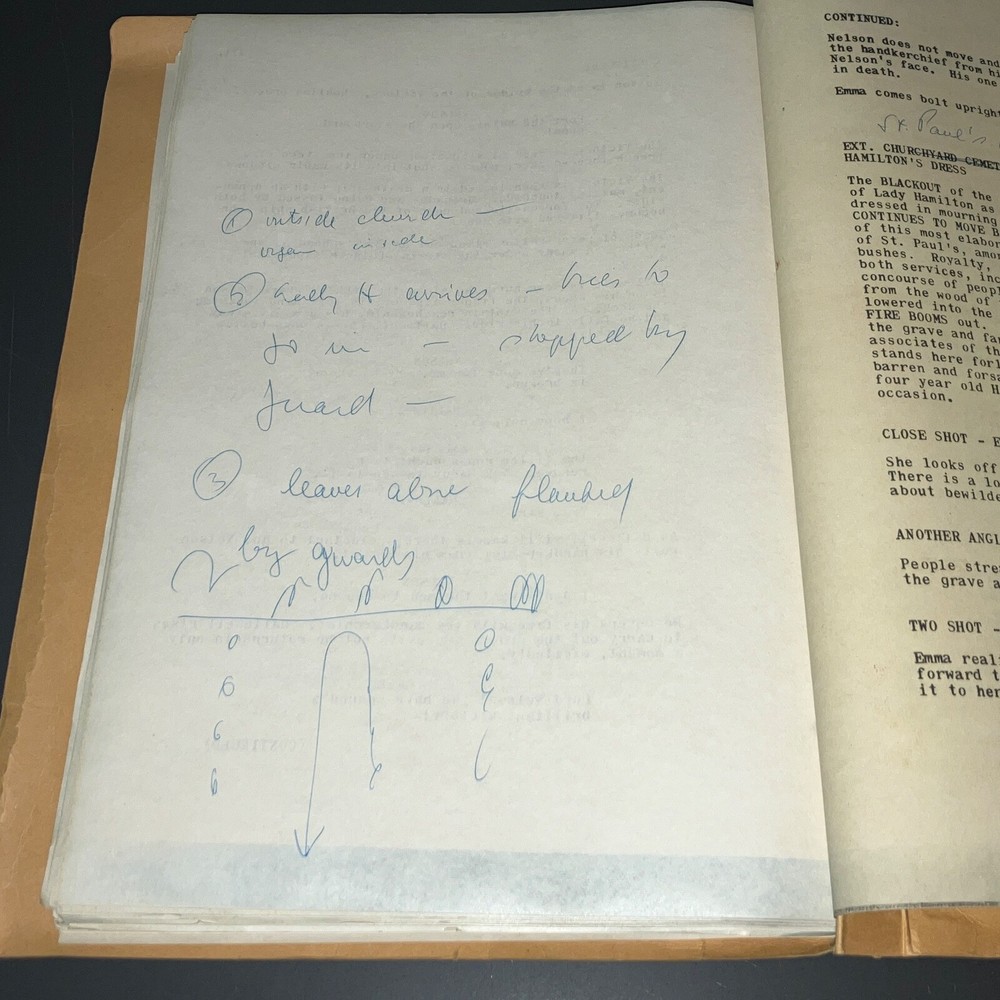 ① outside church —
organ inside
② Lady H arrives — tries to
go in — stopped by
guard —
③ leaves alone flanked
by guards
CONTINUED:
Nelson does not move and
the handkerchief from hi
Nelson's face. His one
in death.
Emma comes bolt upright
St. Paul's
EXT. CHURCHYARD CEMET
HAMILTON'S DRESS
The BLACKOUT of the
of Lady Hamilton as
dressed in mourning
CONTINUES TO MOVE B
of this most elabor
of St. Paul's, amon
bushes. Royalty,
both services, inc
concourse of peopl
from the wood of
lowered into the
FIRE BOOMS out.
the grave and fa
associates of th
stands here forl
barren and forsa
four year old H
occasion.
CLOSE SHOT - E
She looks off
There is a lo
about bewilde
ANOTHER ANGL
People stre
the grave a
TWO SHOT -
Emma real
forward t
it to her